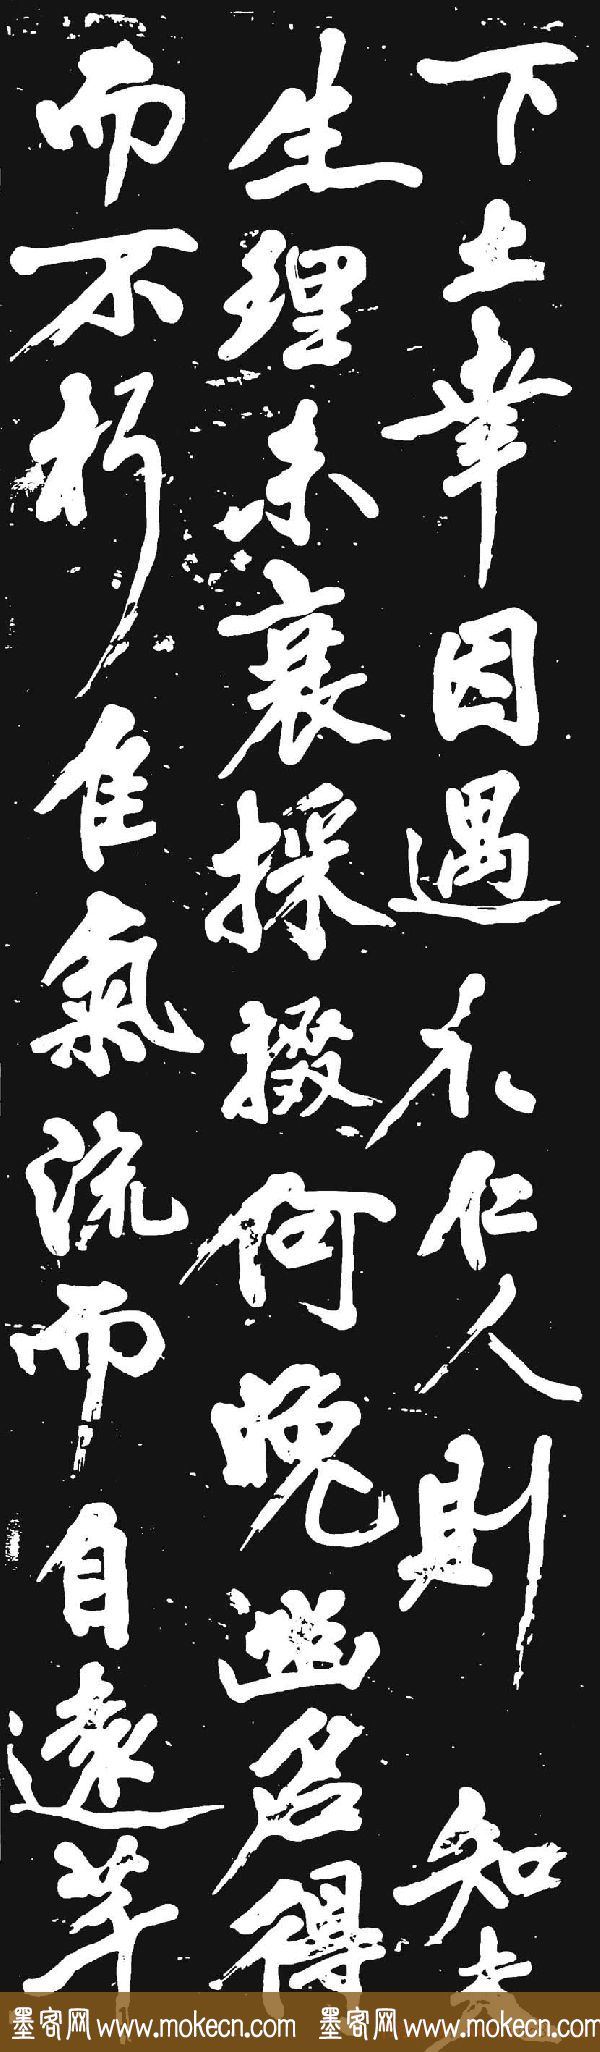 下土幸因遇不仁人則知
生理未衰採掇何晚幽名得
而不朽隹氣流而自遠芊
墨客网 www.mokecn.com 墨客网 www.mokecn.com